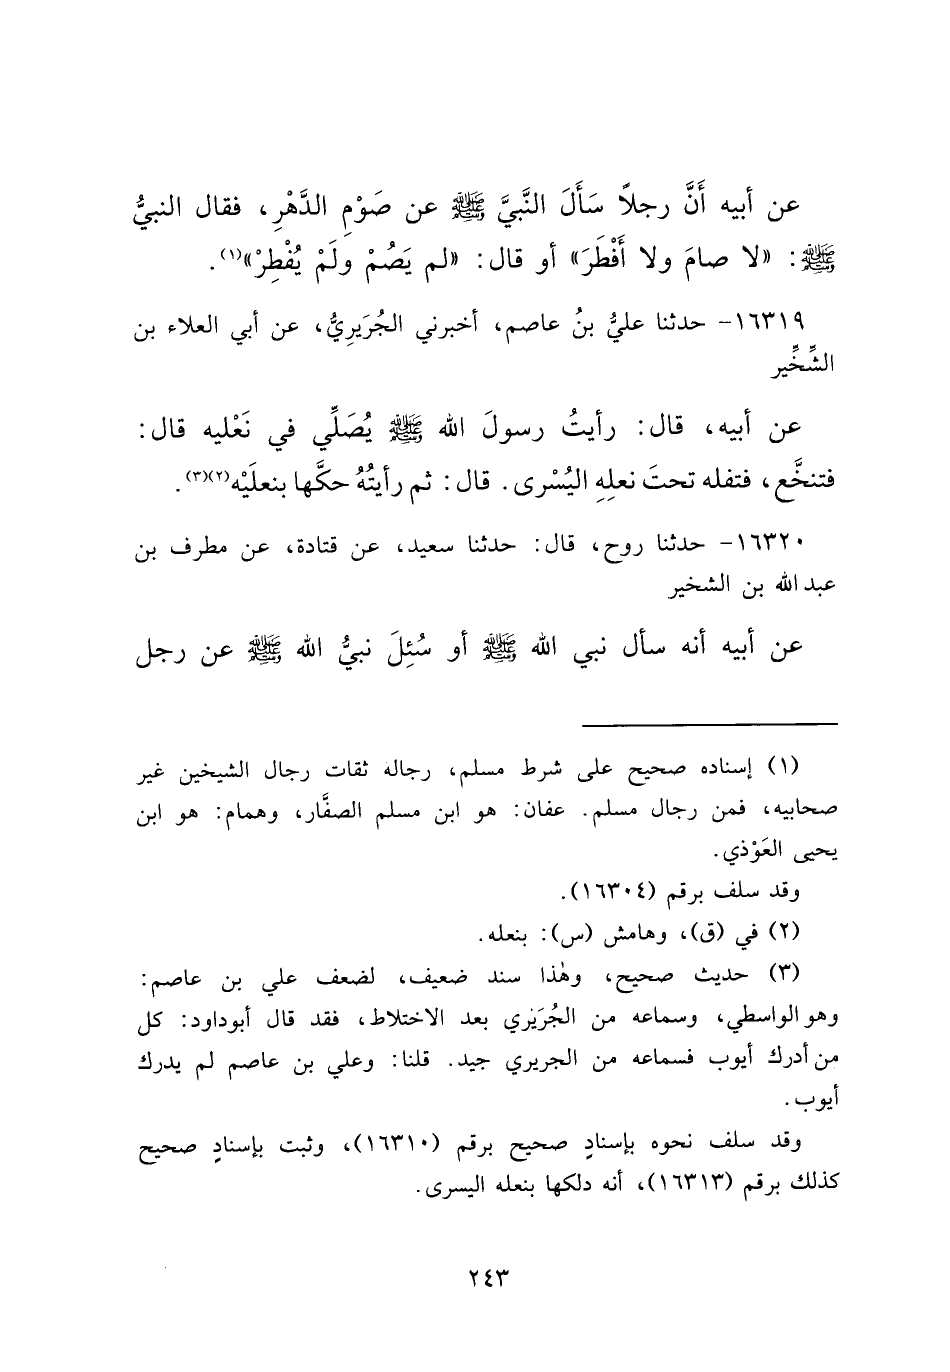 عن أبيه أَنَّ رجلاً سَأَلَ النَّبيَّ ﷺ عن صَوْمِ الدَّهْرِ، فقال النبيُّ
ﷺ: «لا صامَ ولا أَفْطَرَ» أو قال: «لم يَصُمْ ولَمْ يُفْطِرْ»(١).
١٦٣١٩- حدثنا عليُّ بنُ عاصم، أخبرني الجُرَيرِيُّ، عن أبي العلاء بن
الشِّخِّير
عن أبيه، قال: رأيتُ رسولَ الله ﷺ يُصَلِّي في نَعْليه قال:
فتنخَّع، فتفله تحتَ نعلِهِ اليُسْرى. قال: ثم رأيتُهُ حكَّها بنعلَيْه(٢)(٣).
١٦٣٢٠- حدثنا روح، قال: حدثنا سعيد، عن قتادة، عن مطرف بن
عبد الله بن الشخير
عن أبيه أنه سأل نبي الله ﷺ أو سُئِلَ نبيُّ الله ﷺ عن رجل
(١) إسناده صحيح على شرط مسلم، رجاله ثقات رجال الشيخين غير
صحابيه، فمن رجال مسلم. عفان: هو ابن مسلم الصفَّار، وهمام: هو ابن
يحيى العَوْذي.
وقد سلف برقم (١٦٣٠٤).
(٢) في (ق)، وهامش (س): بنعله.
(٣) حديث صحيح، وهٰذا سند ضعيف، لضعف علي بن عاصم:
وهو الواسطي، وسماعه من الجُرَيْري بعد الاختلاط، فقد قال أبوداود: كل
من أدرك أيوب فسماعه من الجريري جيد. قلنا: وعلي بن عاصم لم يدرك
أيوب.
وقد سلف نحوه بإسنادٍ صحيح برقم (١٦٣١٠)، وثبت بإسنادٍ صحيح
كذلك برقم (١٦٣١٣)، أنه دلكها بنعله اليسرى.
٢٤٣